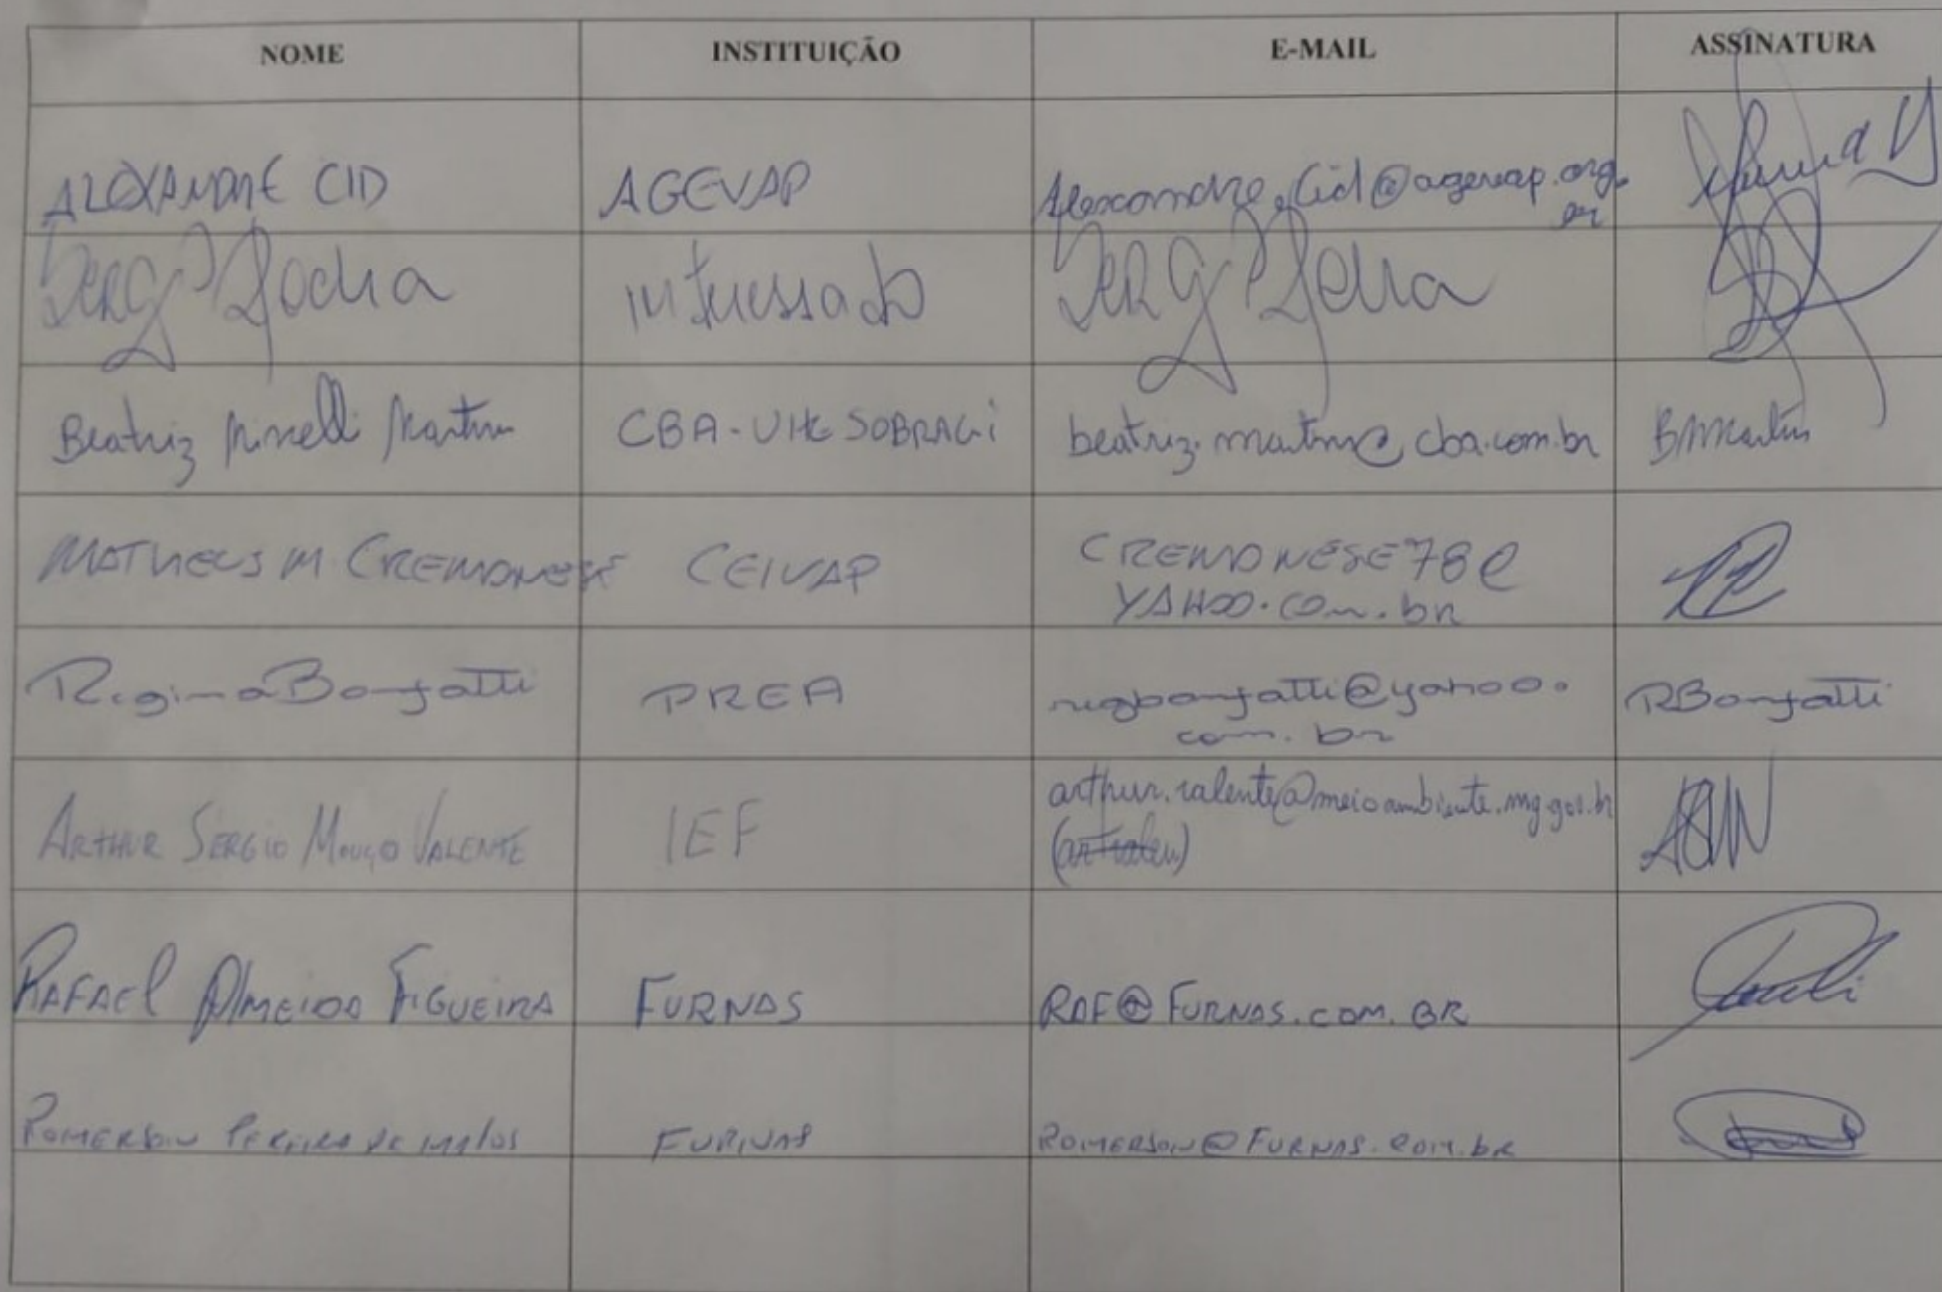 NOME INSTITUIÇÃO E-MAIL ASSINATURA
ALEXANDRE CID AGEVAP Alexandre.Cid@agevap.org.
br
Rocha interessado
Beatriz Minelli Martins CBA-UHE SOBRAGI beatriz.martins@cba.com.br BMMartins
MATHEUS M. CREMONESE CEIVAP CREMONESE78@
YAHOO.com.br
Regina Bonfatti PREA regbonfatti@yahoo. RBonfatti
com.br
ARTHUR SERGIO MOUÇO VALENTE IEF arthur.valente@meioambiente.mg.gov.br
RAFAEL ALMEIDA FIGUEIRA FURNAS RAF@FURNAS.COM.BR
ROMERSON PEREIRA DE MATOS FURNAS ROMERSON@FURNAS.COM.br